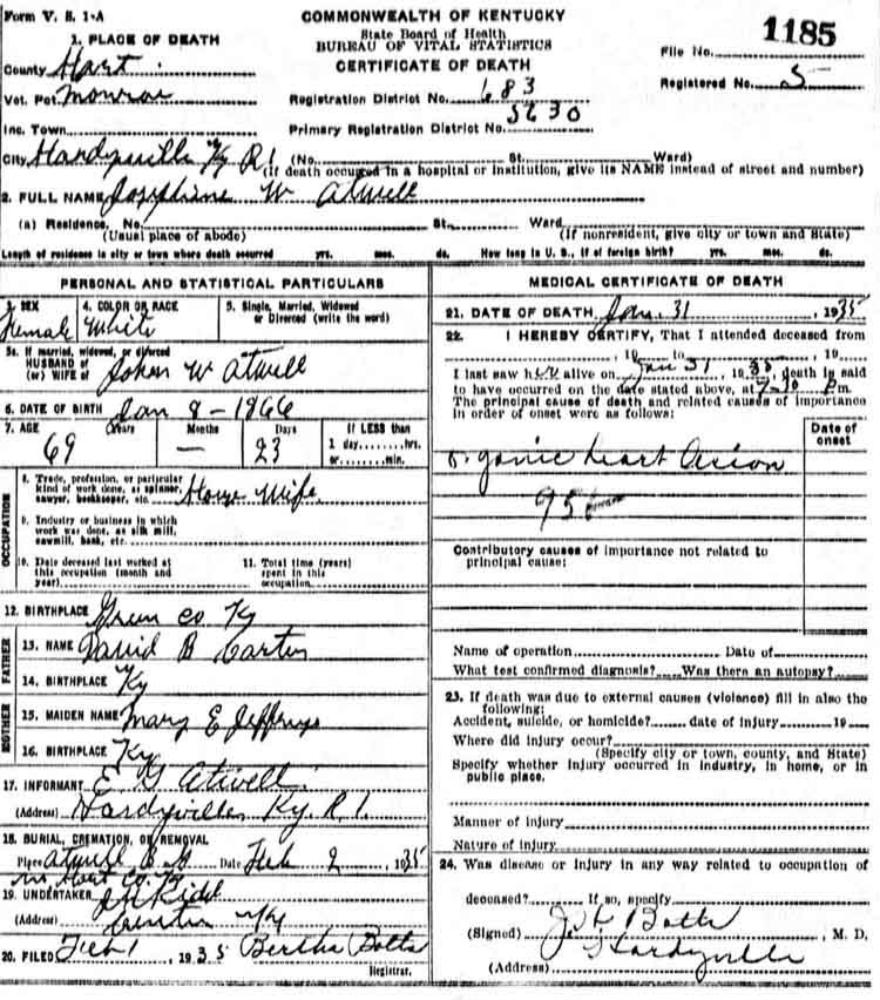 Form V. S. 1-A
COMMONWEALTH OF KENTUCKY
State Board of Health
BUREAU OF VITAL STATISTICS
CERTIFICATE OF DEATH
1185
File No.
Registered No. 5
1. PLACE OF DEATH
County Hart
Vot. Pct. Monroe
Inc. Town
City Hardyville Ky R 1
Registration District No. 683
Primary Registration District No. 5630
(No. St. Ward)
(If death occurred in a hospital or institution, give its NAME instead of street and number)
2. FULL NAME Josephine W Atwell
(a) Residence. No. St. Ward
(Usual place of abode) (If nonresident, give city or town and State)
Length of residence in city or town where death occurred yrs. mos. ds. How long in U. S., if of foreign birth? yrs. mos. ds.
PERSONAL AND STATISTICAL PARTICULARS
3. SEX 4. COLOR OR RACE 5. Single, Married, Widowed
or Divorced (write the word)
Female White
5a. If married, widowed, or divorced
HUSBAND of
(or) WIFE of John W Atwell
6. DATE OF BIRTH Jan 8 - 1866
7. AGE Years Months Days If LESS than
1 day, hrs.
or min.
69 — 23
OCCUPATION
8. Trade, profession, or particular
kind of work done, as spinner,
sawyer, bookkeeper, etc. House Wife
9. Industry or business in which
work was done, as silk mill,
sawmill, bank, etc.
10. Date deceased last worked at
this occupation (month and
year)
11. Total time (years)
spent in this
occupation
12. BIRTHPLACE Green Co Ky
FATHER
13. NAME David B Carter
14. BIRTHPLACE Ky
MOTHER
15. MAIDEN NAME Mary E Jeffryes
16. BIRTHPLACE Ky
17. INFORMANT E G Atwell
(Address) Hardyville, Ky. R 1.
18. BURIAL, CREMATION, OR REMOVAL
Place Atwell Date Feb 2, 1935
Hart Co. Ky
19. UNDERTAKER
(Address) Ky
20. FILED Feb 1, 1935 Bertha Botts
Registrar.
MEDICAL CERTIFICATE OF DEATH
21. DATE OF DEATH Jan. 31, 1935
22. I HEREBY CERTIFY, That I attended deceased from
, 19 to , 19
I last saw her alive on Jan 31, 1935, death is said
to have occurred on the date stated above, at 7-30 Pm.
The principal cause of death and related causes of importance
in order of onset were as follows:
Date of
onset
Organic heart
95
Contributory causes of importance not related to
principal cause:
Name of operation Date of
What test confirmed diagnosis? Was there an autopsy?
23. If death was due to external causes (violence) fill in also the
following:
Accident, suicide, or homicide? date of injury 19
Where did injury occur?
(Specify city or town, county, and State)
Specify whether injury occurred in industry, in home, or in
public place.
Manner of injury
Nature of injury
24. Was disease or injury in any way related to occupation of
deceased? If so, specify
(Signed) Botts, M. D.
(Address) Hardyville